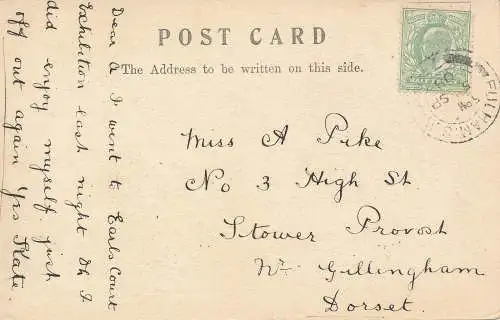 POST CARD
The Address to be written on this side.
Dear A I went to Earls Court
Exhibition last night Oh I
did enjoy myself just
off out again Yrs Kate
FULHAM
Miss A Pike
No 3 High St.
Stower Provost
Nr. Gillingham
Dorset.